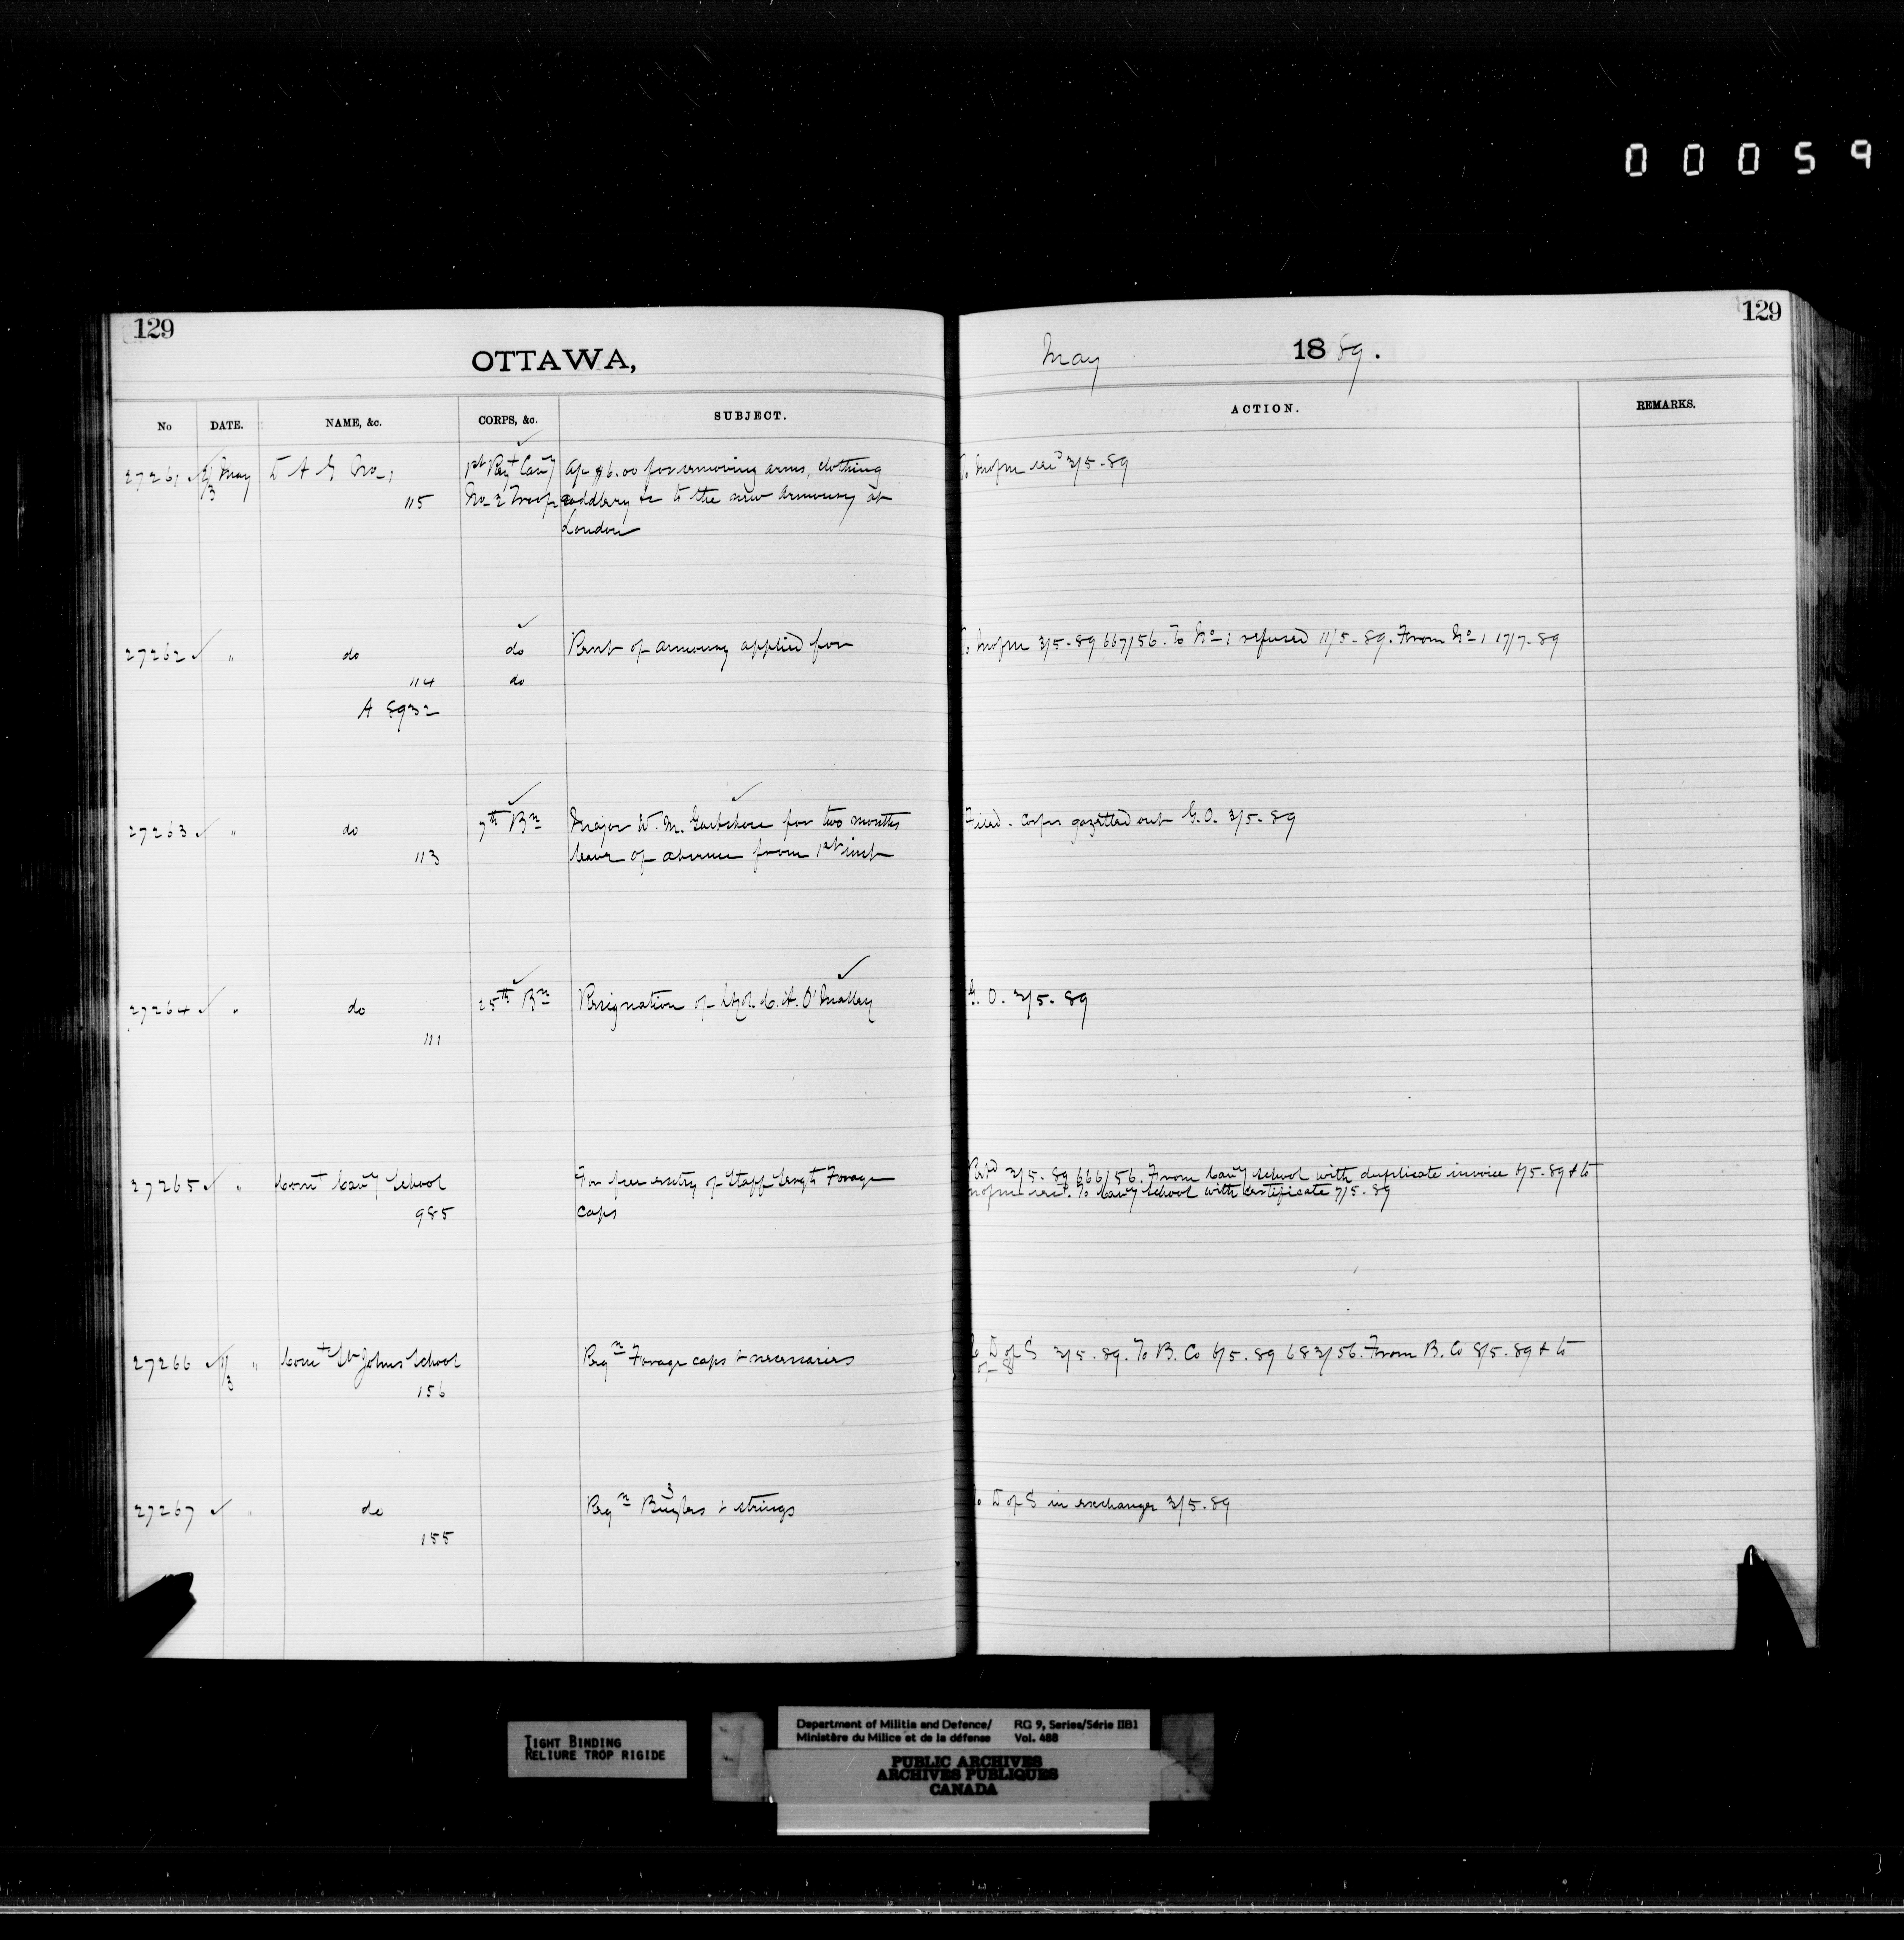 00059
129
129
OTTAWA,
May 1889.
No DATE. NAME, &c. CORPS, &c. SUBJECT. ACTION. REMARKS.
27261 ✓ 2/3 May D A G No 1 1st Regt Cavy Ap $6.00 for removing arms, clothing To M of M 3/5-89
115 No 2 Troop saddlery &c to the new Armoury at
London
27262 ✓ " do do Rent of armoury applied for To M of M 3/5-89 667/56. To No 1 refused 11/5-89. From No 1 17/7-89
114 do
A 8932
27263 ✓ " do 7th Bn Major W. M. Gartshore for two months Filed. Corps gazetted out G.O. 3/5-89
113 leave of absence from 1st inst
27264 ✓ " do 25th Bn Resignation of C. A. O'Malley G. O. 3/5-89
111
27265 ✓ " Comt Cavy School For free entry of Staff Sergts Forage 3/5-89 666/56. From Cavy School with duplicate invoice 6/5-89 & to
985 caps M of M. To Cavy School with certificate 7/5-89
27266 ✓ 1/3 " Comt St Johns School Reqn Forage caps & necessaries To D of S 3/5-89. To B. Co 6/5-89 683/56. From B. Co 8/5-89 & to
156 D of S
27267 ✓ " do Reqn 3 Bugles & strings To D of S in exchange 3/5-89
155
TIGHT BINDING
RELIURE TROP RIGIDE
Department of Militia and Defence/ RG 9, Series/Série IIB1
Ministère du Milice et de la défense Vol. 488
PUBLIC ARCHIVES
ARCHIVES PUBLIQUES
CANADA